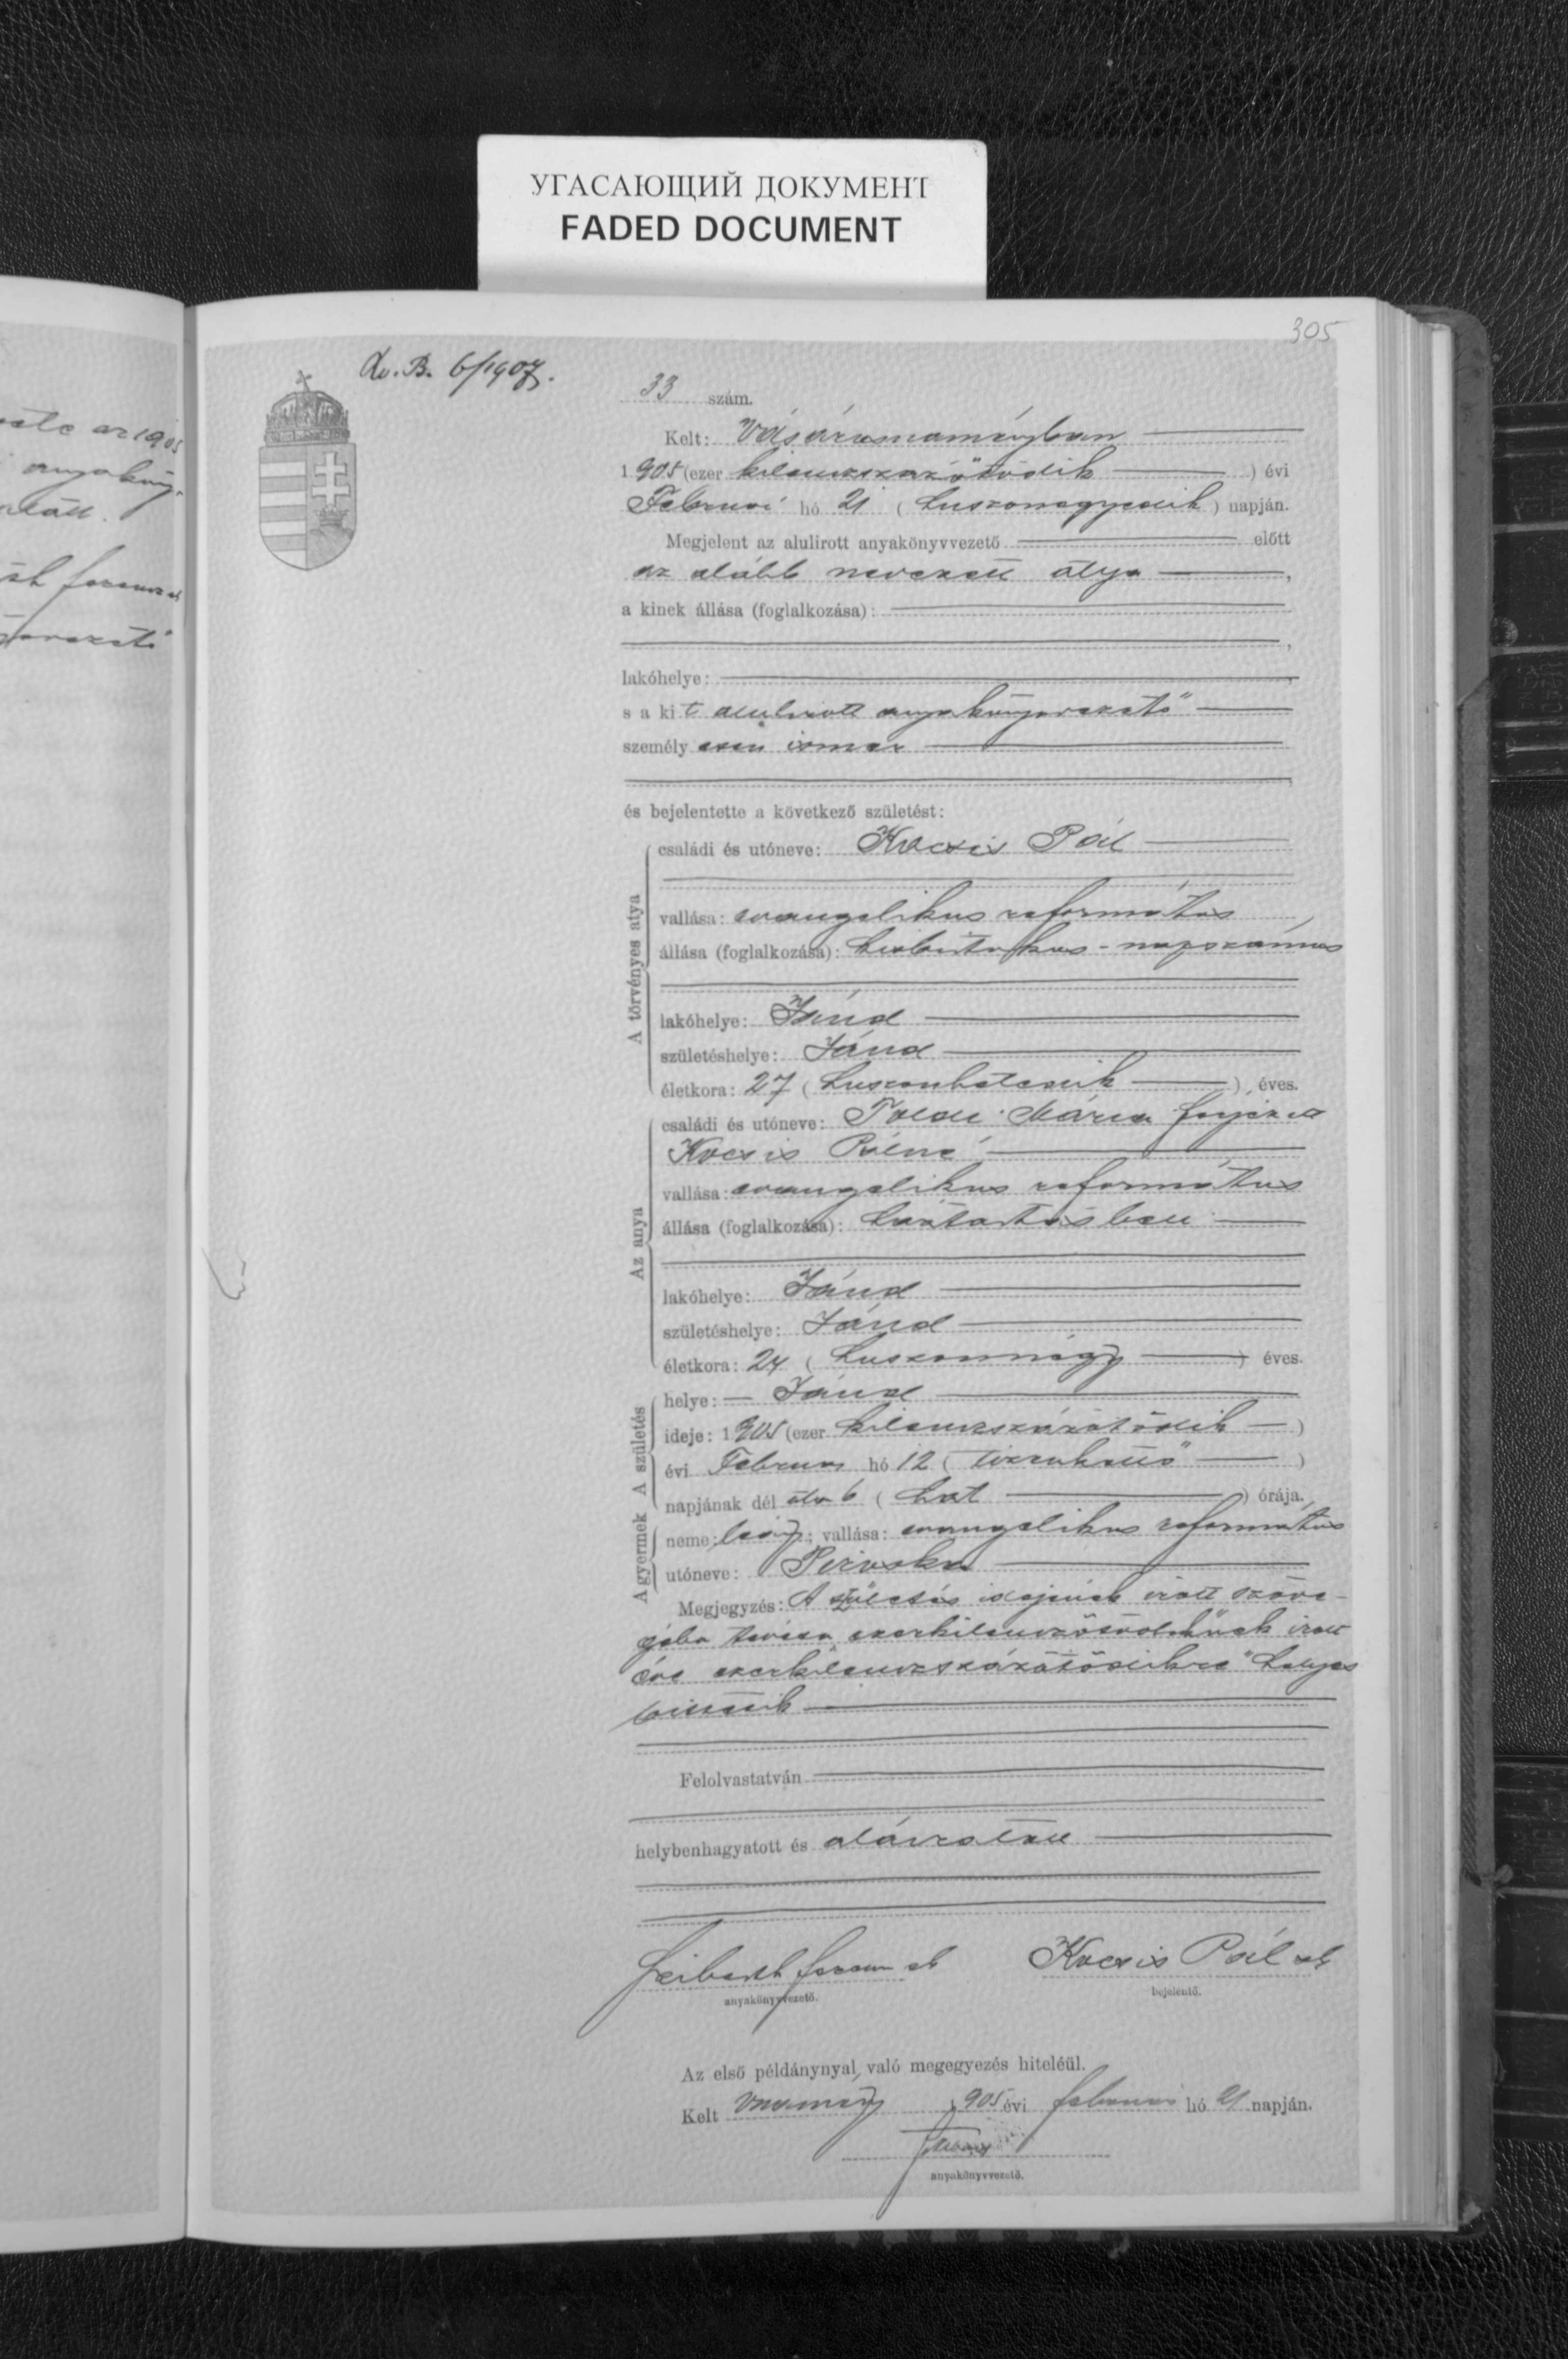 УГАСАЮЩИЙ ДОКУМЕНТ
FADED DOCUMENT
305
B. 6/1907.
33 szám.
Kelt: Vásárosnaményban
1905 (ezer kilenczszázötödik) évi
Február hó 21 ( ) napján.
Megjelent az alulirott anyakönyvvezető előtt
az alább nevezett atya,
a kinek állása (foglalkozása):
lakóhelye:
s a kit alulirott anyakönyvvezető
személyesen ismer
és bejelentette a következő születést:
A törvényes atya
családi és utóneve: Kocsis Pál
vallása: evangelikus református
állása (foglalkozása): kisbirtokos - napszámos
lakóhelye: Jánd
születéshelye: Jánd
életkora: 27 (huszonhetedik) éves.
Az anya
családi és utóneve: Mária férjezett
Kocsis Pálné
vallása: evangelikus református
állása (foglalkozása): háztartásbeli
lakóhelye: Jánd
születéshelye: Jánd
életkora: 24 (huszonnégy) éves.
A születés
helye: Jánd
ideje: 1905 (ezer kilenczszázötödik)
évi Február hó 12 (tizenkettő)
napjának dél után 6 (hat) órája.
A gyermek
neme: leány; vallása: evangelikus református
utóneve: Piroska
Megjegyzés: A születés idejének irott szöve-
gébe irott
éve ezerkilenczszázötödikre" helyes
bittetik
Felolvastatván
helybenhagyatott és aláiratott
Ferencz sk Kocsis Pál sk
anyakönyvvezető. bejelentő.
Az első példánynyal való megegyezés hiteléül.
Kelt Vnamény, 1905 évi február hó 21 napján.
anyakönyvvezető.